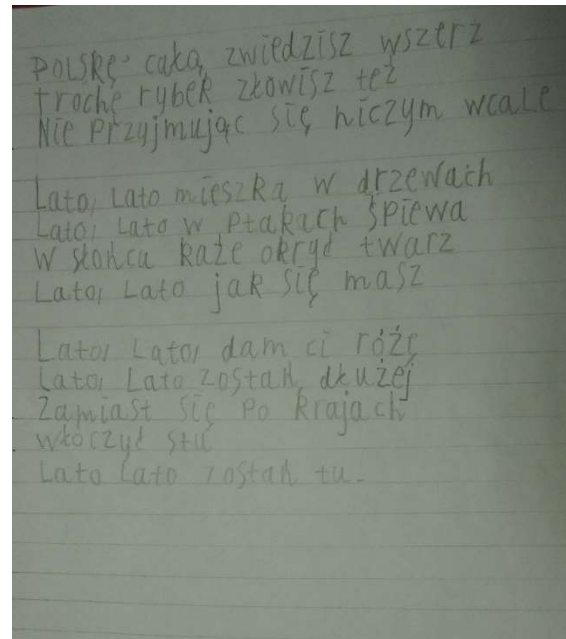 POLSKĘ całą zwiedzisz wszerz
trochę rybek złowisz też
Nie Przyjmując się niczym wcale
Lato, Lato mieszka w drzewach
Lato, Lato w Ptakach śpiewa
W słońcu każe okryć twarz
Lato, Lato jak się masz
Lato, Lato, dam ci różę
Lato, Lato zostań dłużej
Zamiast się Po krajach
włóczyć stu
Lato Lato zostań tu.